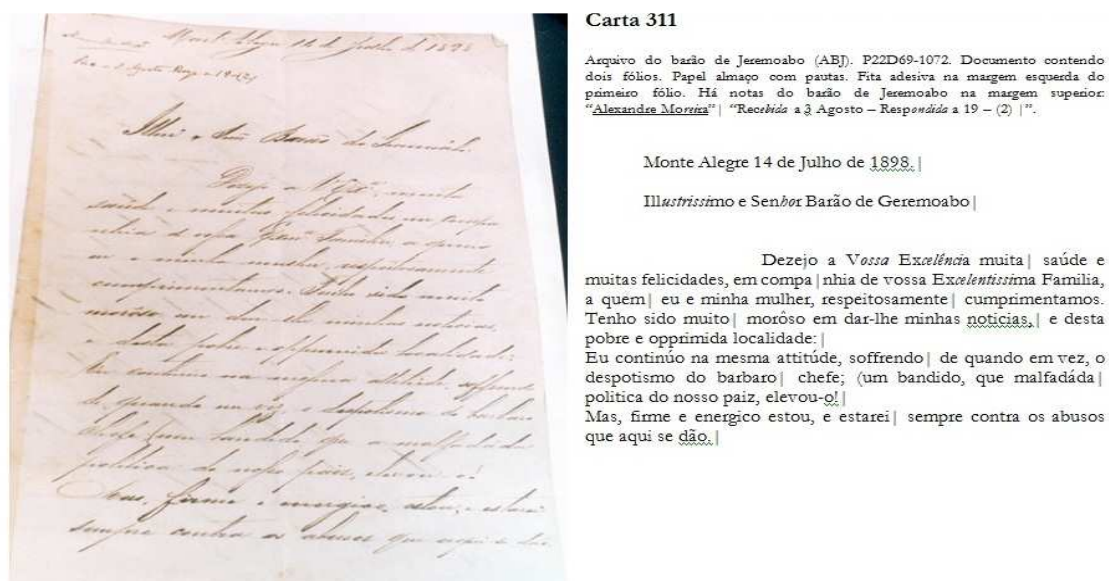 Monte Alegre 14 de Julho de 1898
Agosto Resp a 19-(2)
Illmo e Senr Barão de Geremoabo
Dezejo a V. Exa. muita
saúde e muitas felicidades, em compa
nhia de vossa Exma. Familia, a quem
eu e minha mulher, respeitosamente
cumprimentamos. Tenho sido muito
morôso em dar-lhe minhas noticias,
e desta pobre e opprimida localidade:
Eu continúo na mesma attitúde, soffrendo
de quando em vez, o despotismo do barbaro
chefe; (um bandido, que a malfadáda
politica do nosso paiz, elevou-o!
Mas, firme e energico estou, e estarei
sempre contra os abusos que aqui se dão.
Carta 311
Arquivo do barão de Jeremoabo (ABJ). P22D69-1072. Documento contendo
dois fólios. Papel almaço com pautas. Fita adesiva na margem esquerda do
primeiro fólio. Há notas do barão de Jeremoabo na margem superior:
“Alexandre Moreira” | “Recebida a 3 Agosto – Respondida a 19 – (2) |”.
Monte Alegre 14 de Julho de 1898. |
Illustrissimo e Senhor Barão de Geremoabo |
Dezejo a Vossa Excelência muita | saúde e
muitas felicidades, em compa |nhia de vossa Excelentissima Familia,
a quem | eu e minha mulher, respeitosamente | cumprimentamos.
Tenho sido muito | morôso em dar-lhe minhas noticias, | e desta
pobre e opprimida localidade: |
Eu continúo na mesma attitúde, soffrendo | de quando em vez, o
despotismo do barbaro | chefe; (um bandido, que malfadáda |
politica do nosso paiz, elevou-o! |
Mas, firme e energico estou, e estarei | sempre contra os abusos
que aqui se dão. |